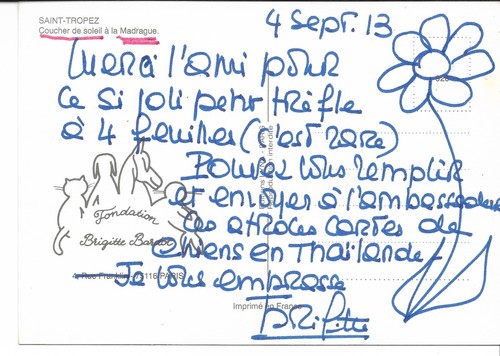 SAINT-TROPEZ
Coucher de soleil à la Madrague.
4 Sept. 13
Merci l'ami pour
ce si joli petit trèfle
à 4 feuilles (c'est rare)
Pouvez vous remplir
et envoyer à l'ambassade
ces atroces cartes de
chiens en Thaïlande.
Je vous embrasse
Brigitte
Fondation
Brigitte Bardot
4, Rue Franklin - 75116 PARIS
Imprimé en France